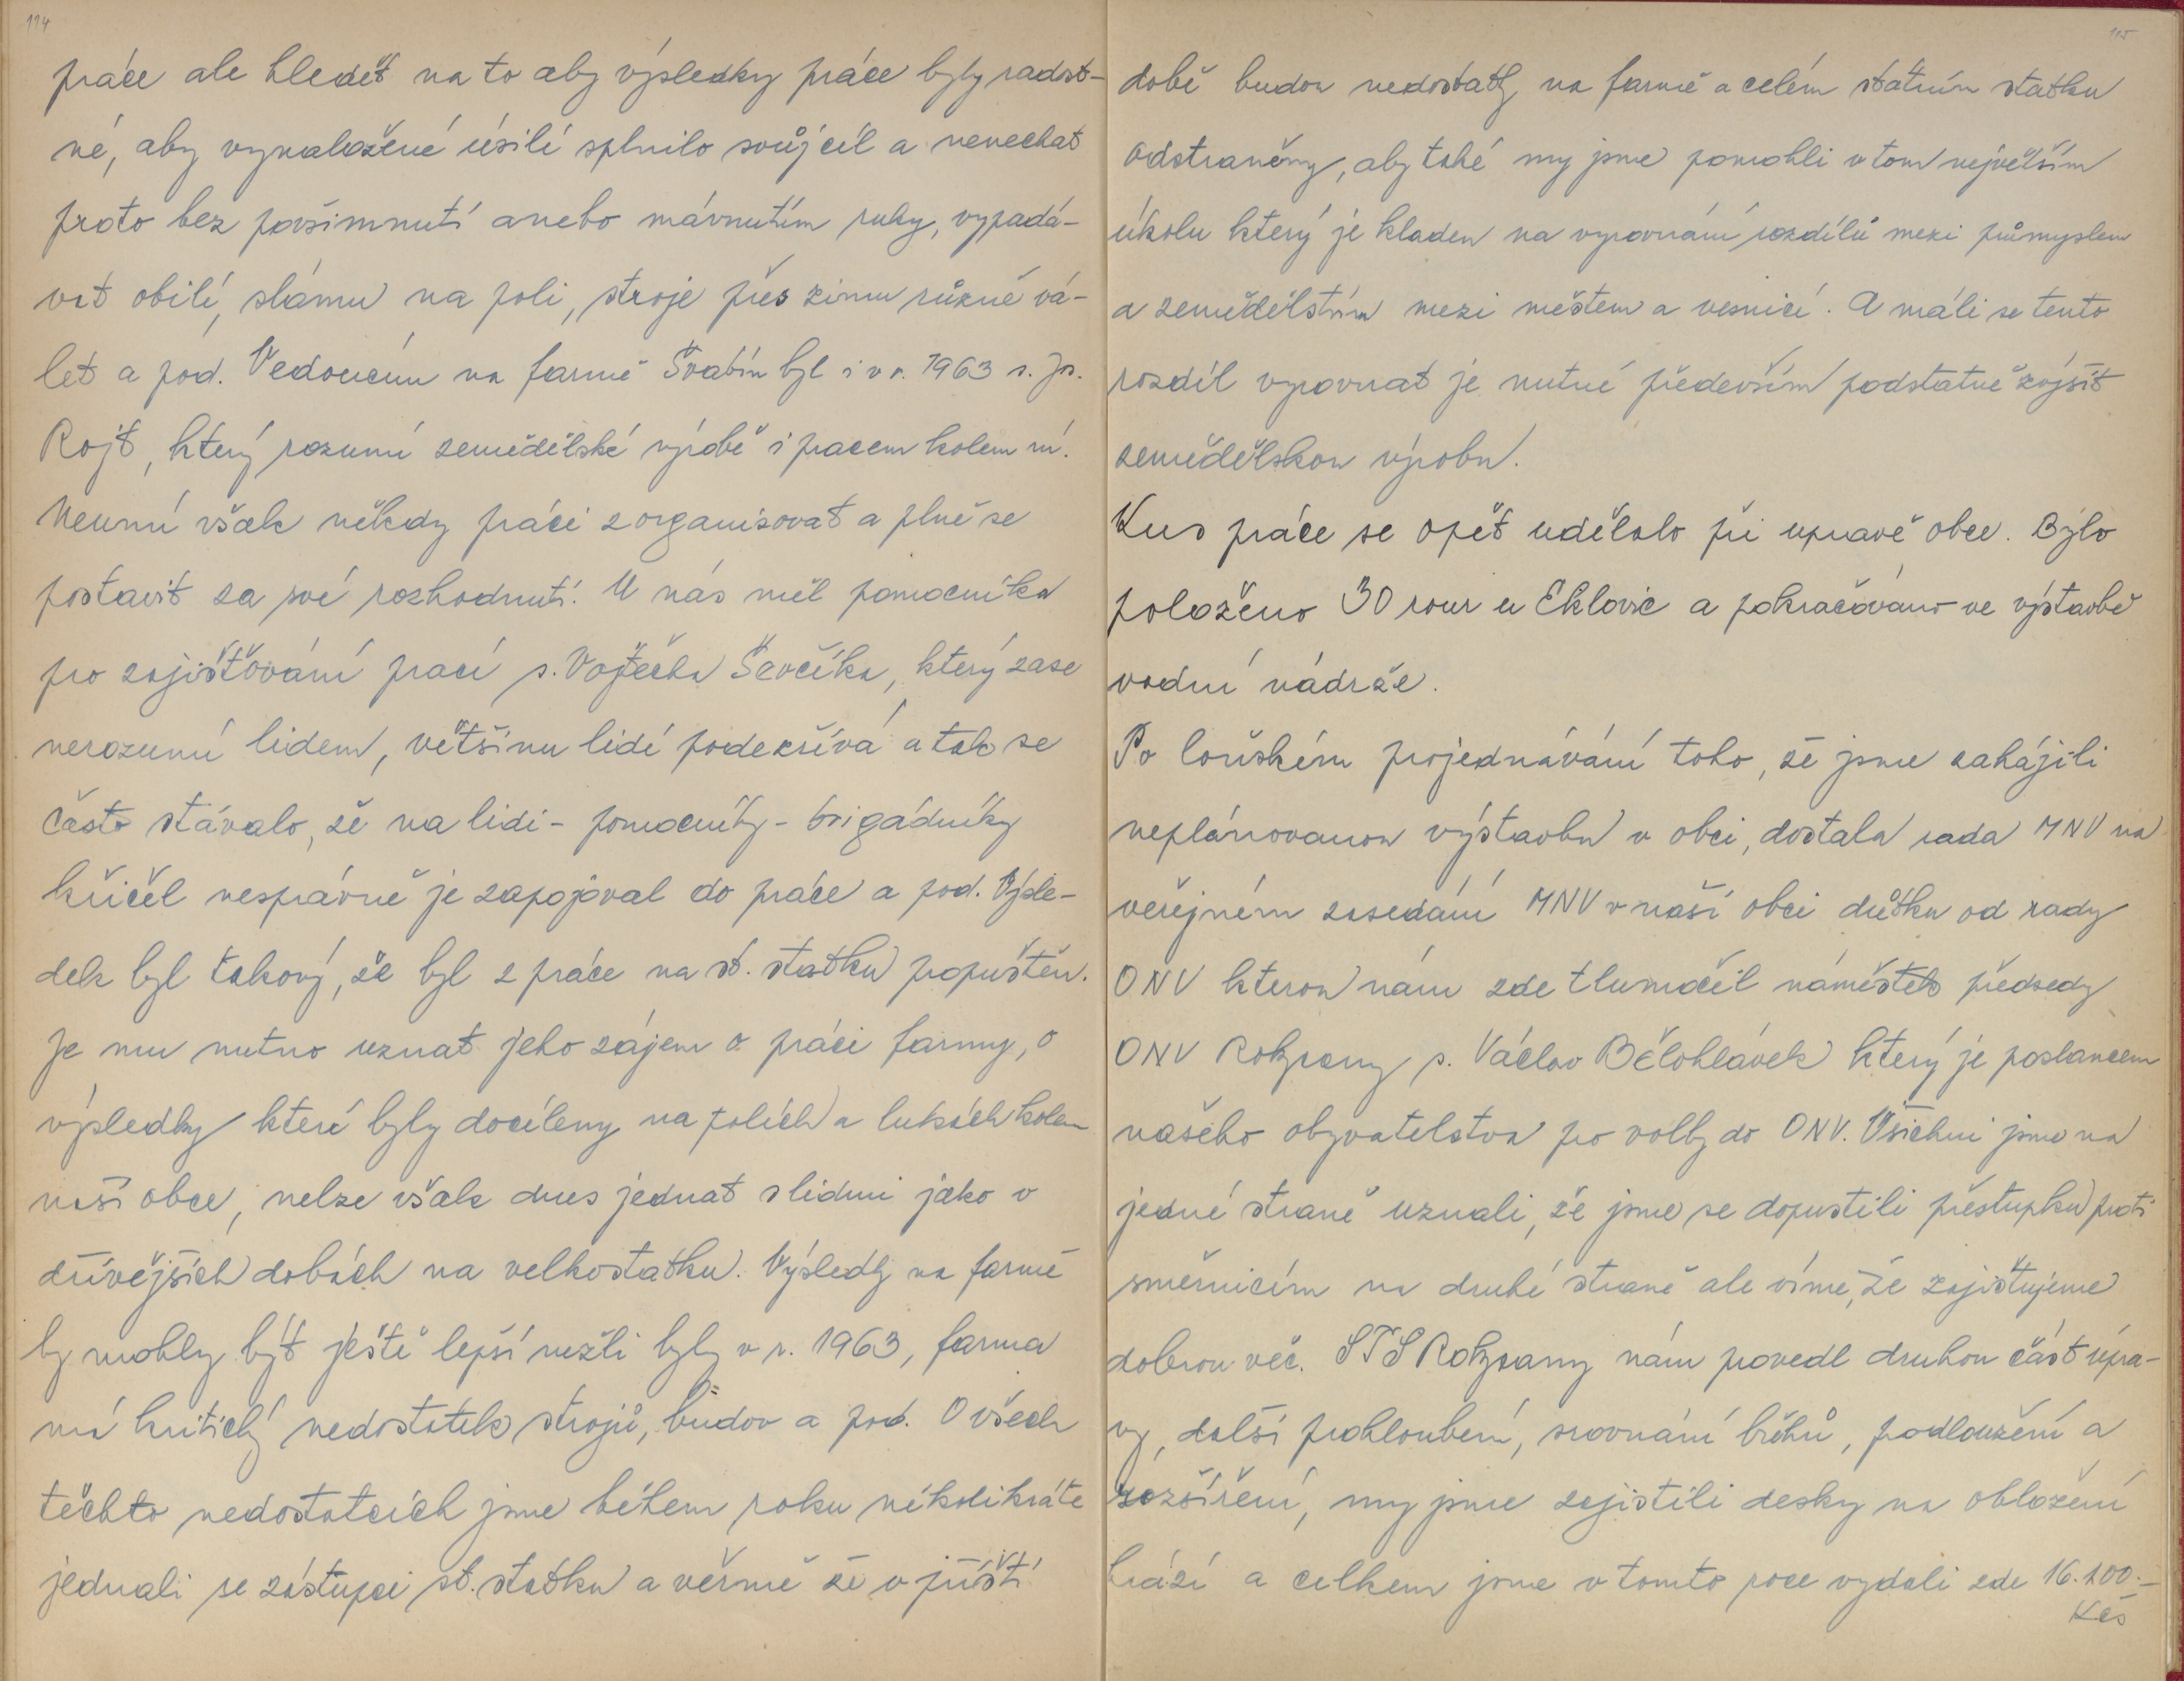 114
práce ale hledět na to aby výsledky práce byly radost-
né, aby vynaložené úsilí splnilo svůj cíl a nenechat
proto bez povšimnutí anebo mávnutím ruky, vypadá-
vat obilí, slámu na poli, stroje přes zimu různě vá-
let a pod. Vedoucím na farmě Švabín byl i v r. 1963 s. Js.
Rojt, který rozumí zemědělské výrobě i pracem kolem ní.
Neumí však někdy práci zorganisovat a plně se
postavit za své rozhodnutí. U nás měl pomocníka
pro zajišťování prací s. Vojtěcha Ševčíka, který zase
nerozumí lidem, většinu lidí podezřívá a tak se
často stávalo, že na lidi - pomocníky - brigádníky
křičel nesprávně je zapojoval do práce a pod. Výsle-
dek byl takový, že byl z práce na st. statku propuštěn.
Je mu nutno uznat jeho zájem o práci farmy, o
výsledky které byly docíleny na polích a lukách kolem
naší obce, nelze však dnes jednat s lidmi jako v
dřívějších dobách na velkostatku. Výsledky na farmě
by mohly být ještě lepší nežli byly v r. 1963, farma
má kritický nedostatek strojů, budov a pod. O všech
těchto nedostatcích jsme během roku několikráte
jednali se zástupci st. statku a věřmě že v příští
115
době budou nedostatky na farmě a celém státním statku
odstraněny, aby také my jsme pomohli v tom největším
úkolu který je kladen na vyrovnání rozdílů mezi průmyslem
a zemědělstvím mezi městem a vesnicí. A máli se tento
rozdíl vyrovnat je nutné především podstatně zvýšit
zemědělskou výrobu.
Kus práce se opět udělalo při upravě obce. Bylo
položeno 30 rour u Eklovic a pokračováno ve výstavbě
vodní nádrže.
Po loňském projednávání toho, že jsme zahájili
neplánovanou výstavbu v obci, dostala rada MNV na
veřejném zasedání MNV v naší obci důtku od rady
ONV kterou nám zde tlumočil náměstek předsedy
ONV Rokycany s. Václav Bělohlávek který je poslancem
našeho obyvatelstva po volby do ONV. Všichni jsme na
jedné straně uznali, že jsme se dopustili přestupku proti
směrnicím na druhé straně ale víme, že zajišťujeme
dobrou věc. STS Rokycany nám provedl druhou část úpra-
vy, další prohloubení, srovnání břehů, prodloužení a
rozšíření, my jsme zajistili desky na obložení
hrází a celkem jsme v tomto roce vydali zde 16.100.-
Kčs